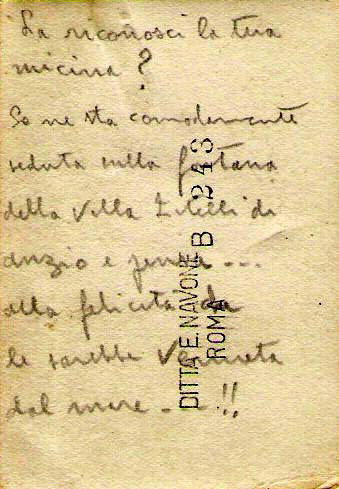 La riconosci la tua
micina?
Se ne sta comodamente
seduta sulla fontana
della Villa di
Anzio e pensa ---
alla felicità da
le sarebbe venuta
dal mare --- !!
DITTA E. NAVONE B 243
ROMA